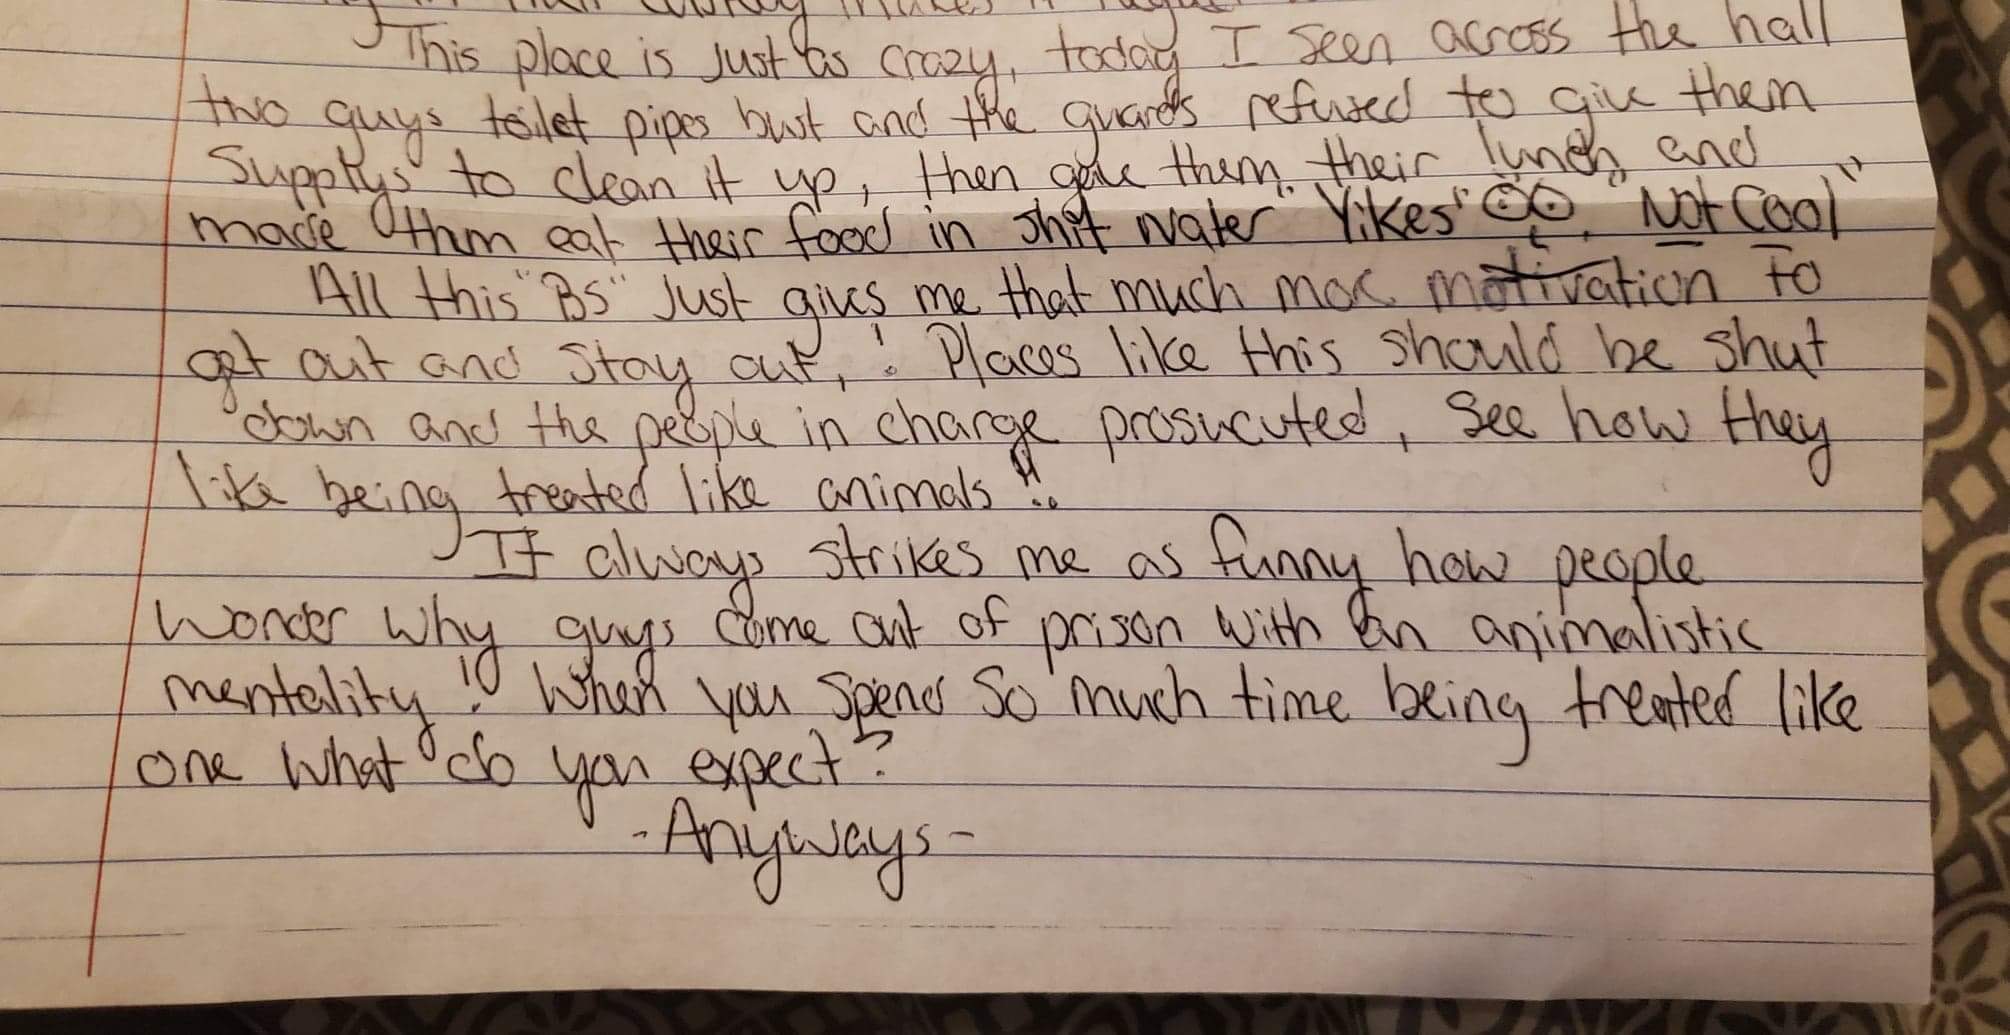 This place is just as crazy, today I seen across the hall
two guys toilet pipes bust and the guards refused to give them
Supplys to clean it up, then gave them their lunch, and
made them eat their food in shit water "Yikes" "Not Cool"
All this "BS" just gives me that much more motivation to
get out and stay out, ! Places like this should be shut
down and the people in charge prosucuted, See how they
like being treated like animals !!
It always strikes me as funny how people
wonder why guys come out of prison with an animalistic
mentality!? When you spend so much time being treated like
one what do you expect?
-Anyways-